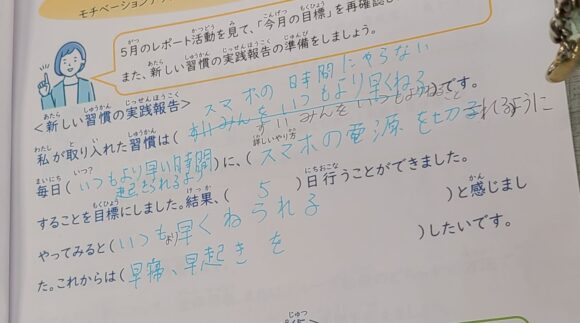 モチベーションアッ
5月のレポート活動を見て、「今月の目標」を再確認し
また、新しい習慣の実践報告の準備をしましょう。
<新しい習慣の実践報告>
スマホの 時間にやらない
私が取り入れた習慣は(すいみんをいつもより早くねる)です。
すいみんをいつもよりねること
毎日(いつもより早い時間 起きられるより)に、(スマホの電源を切れるように
いつ?
詳しいやり方
することを目標にしました。結果、(5)日行うことができました。
やってみると(いつもより早くねられる)と感じまし
た。これからは(早寝、早起きを)したいです。